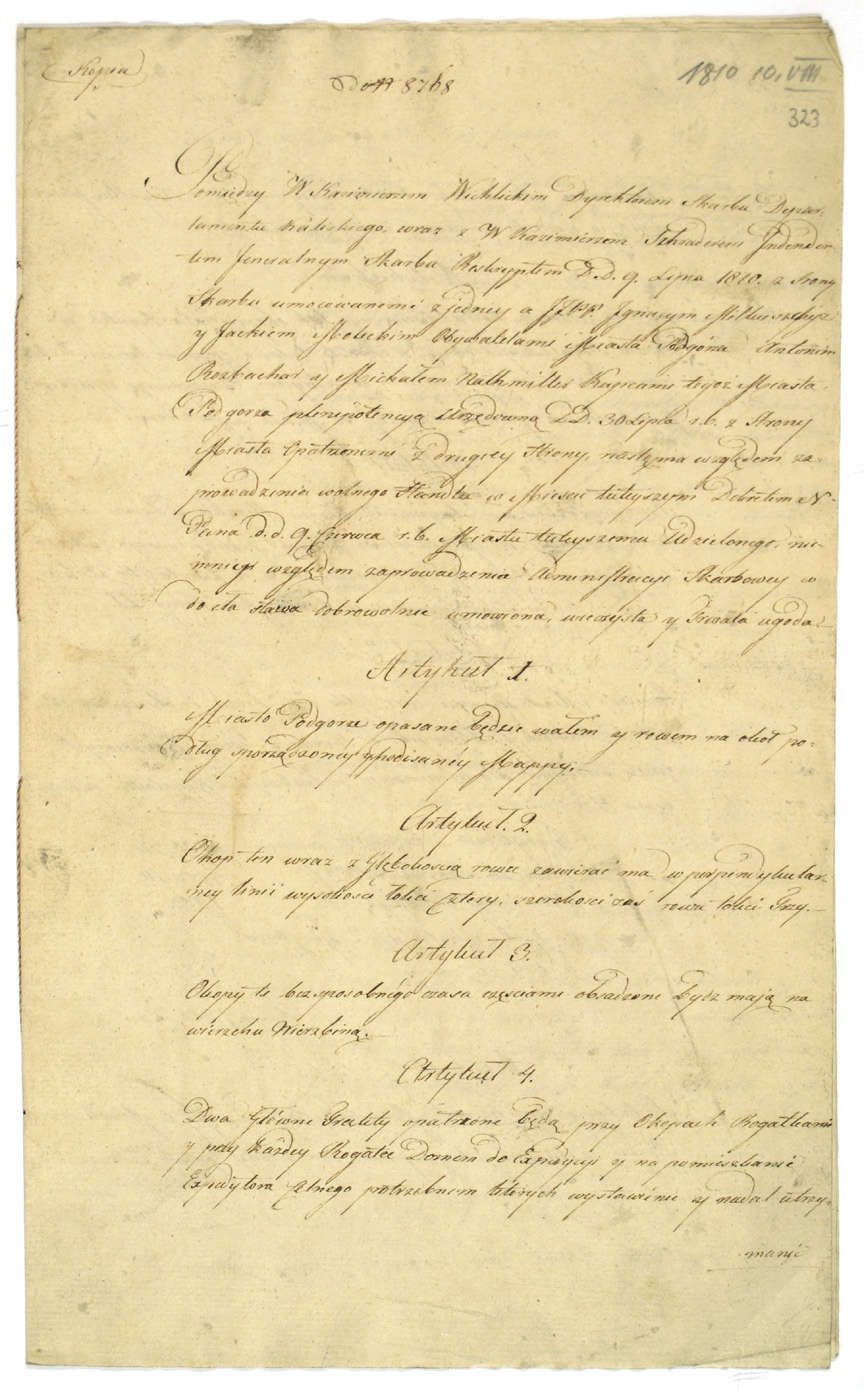 Kopia
Do N 8768
1810 10. VIII
323
Pomiędzy W Kazimierzem Wichlickim Dyrektorem Skarbu Depar,
tamentu Kaliskiego, wraz z W Kazimierzem Schraderem Intenden-
tem Generalnym Skarbu Reskryptem D. D. 9. Lipca 1810. z strony
Skarbu umocowanemi z jedney a
y Jackiem Obywatelami Miasta Podgórza Antonim
Rozbachał y Michałem Kupcami tegoż Miasta
Podgorza plenipotencyą Urzędowną D. D. 30 Lipca r. b. z Strony
Miasta Opatrzonemi z drugiey Strony, następna względem za-
prowadzenia wolnego Handlu w Miescie tuteyszym Dekretem N.
Pana d. d. 9. Czerwca r. b. Miastu tuteyszemu Udzielonego, nie-
mniey względem zaprowadzenia Administracyi Skarbowey w
do cła dobrowolnie umowiona, wieczysta y Trwała ugoda:
Artykuł 1.
Miasto Podgorze opasane będzie wałem y rowem na okoł po-
dług sporządzoney y podpisaney Mappy.
Artykuł. 2.
Okop ten wraz z Głębokoscią rowu zawierać ma w perpendykular
ney linii wysokości łokci Cztery, szerokości zaś rowu łokci Trzy.
Artykuł 3.
Okopy te bez sposobnego czasu częsciami obsadzone bydz maią na
wierzchu Wierzbiną.
Artykuł 4.
Dwa Główne Trakty opatrzone będą przy Okopach Rogatkami
y przy każdey Rogatce Domem do Expedycyi y na pomieszkanie
Expedytora Celnego potrzebnem których wystawienie y nadal utrzy-
manie